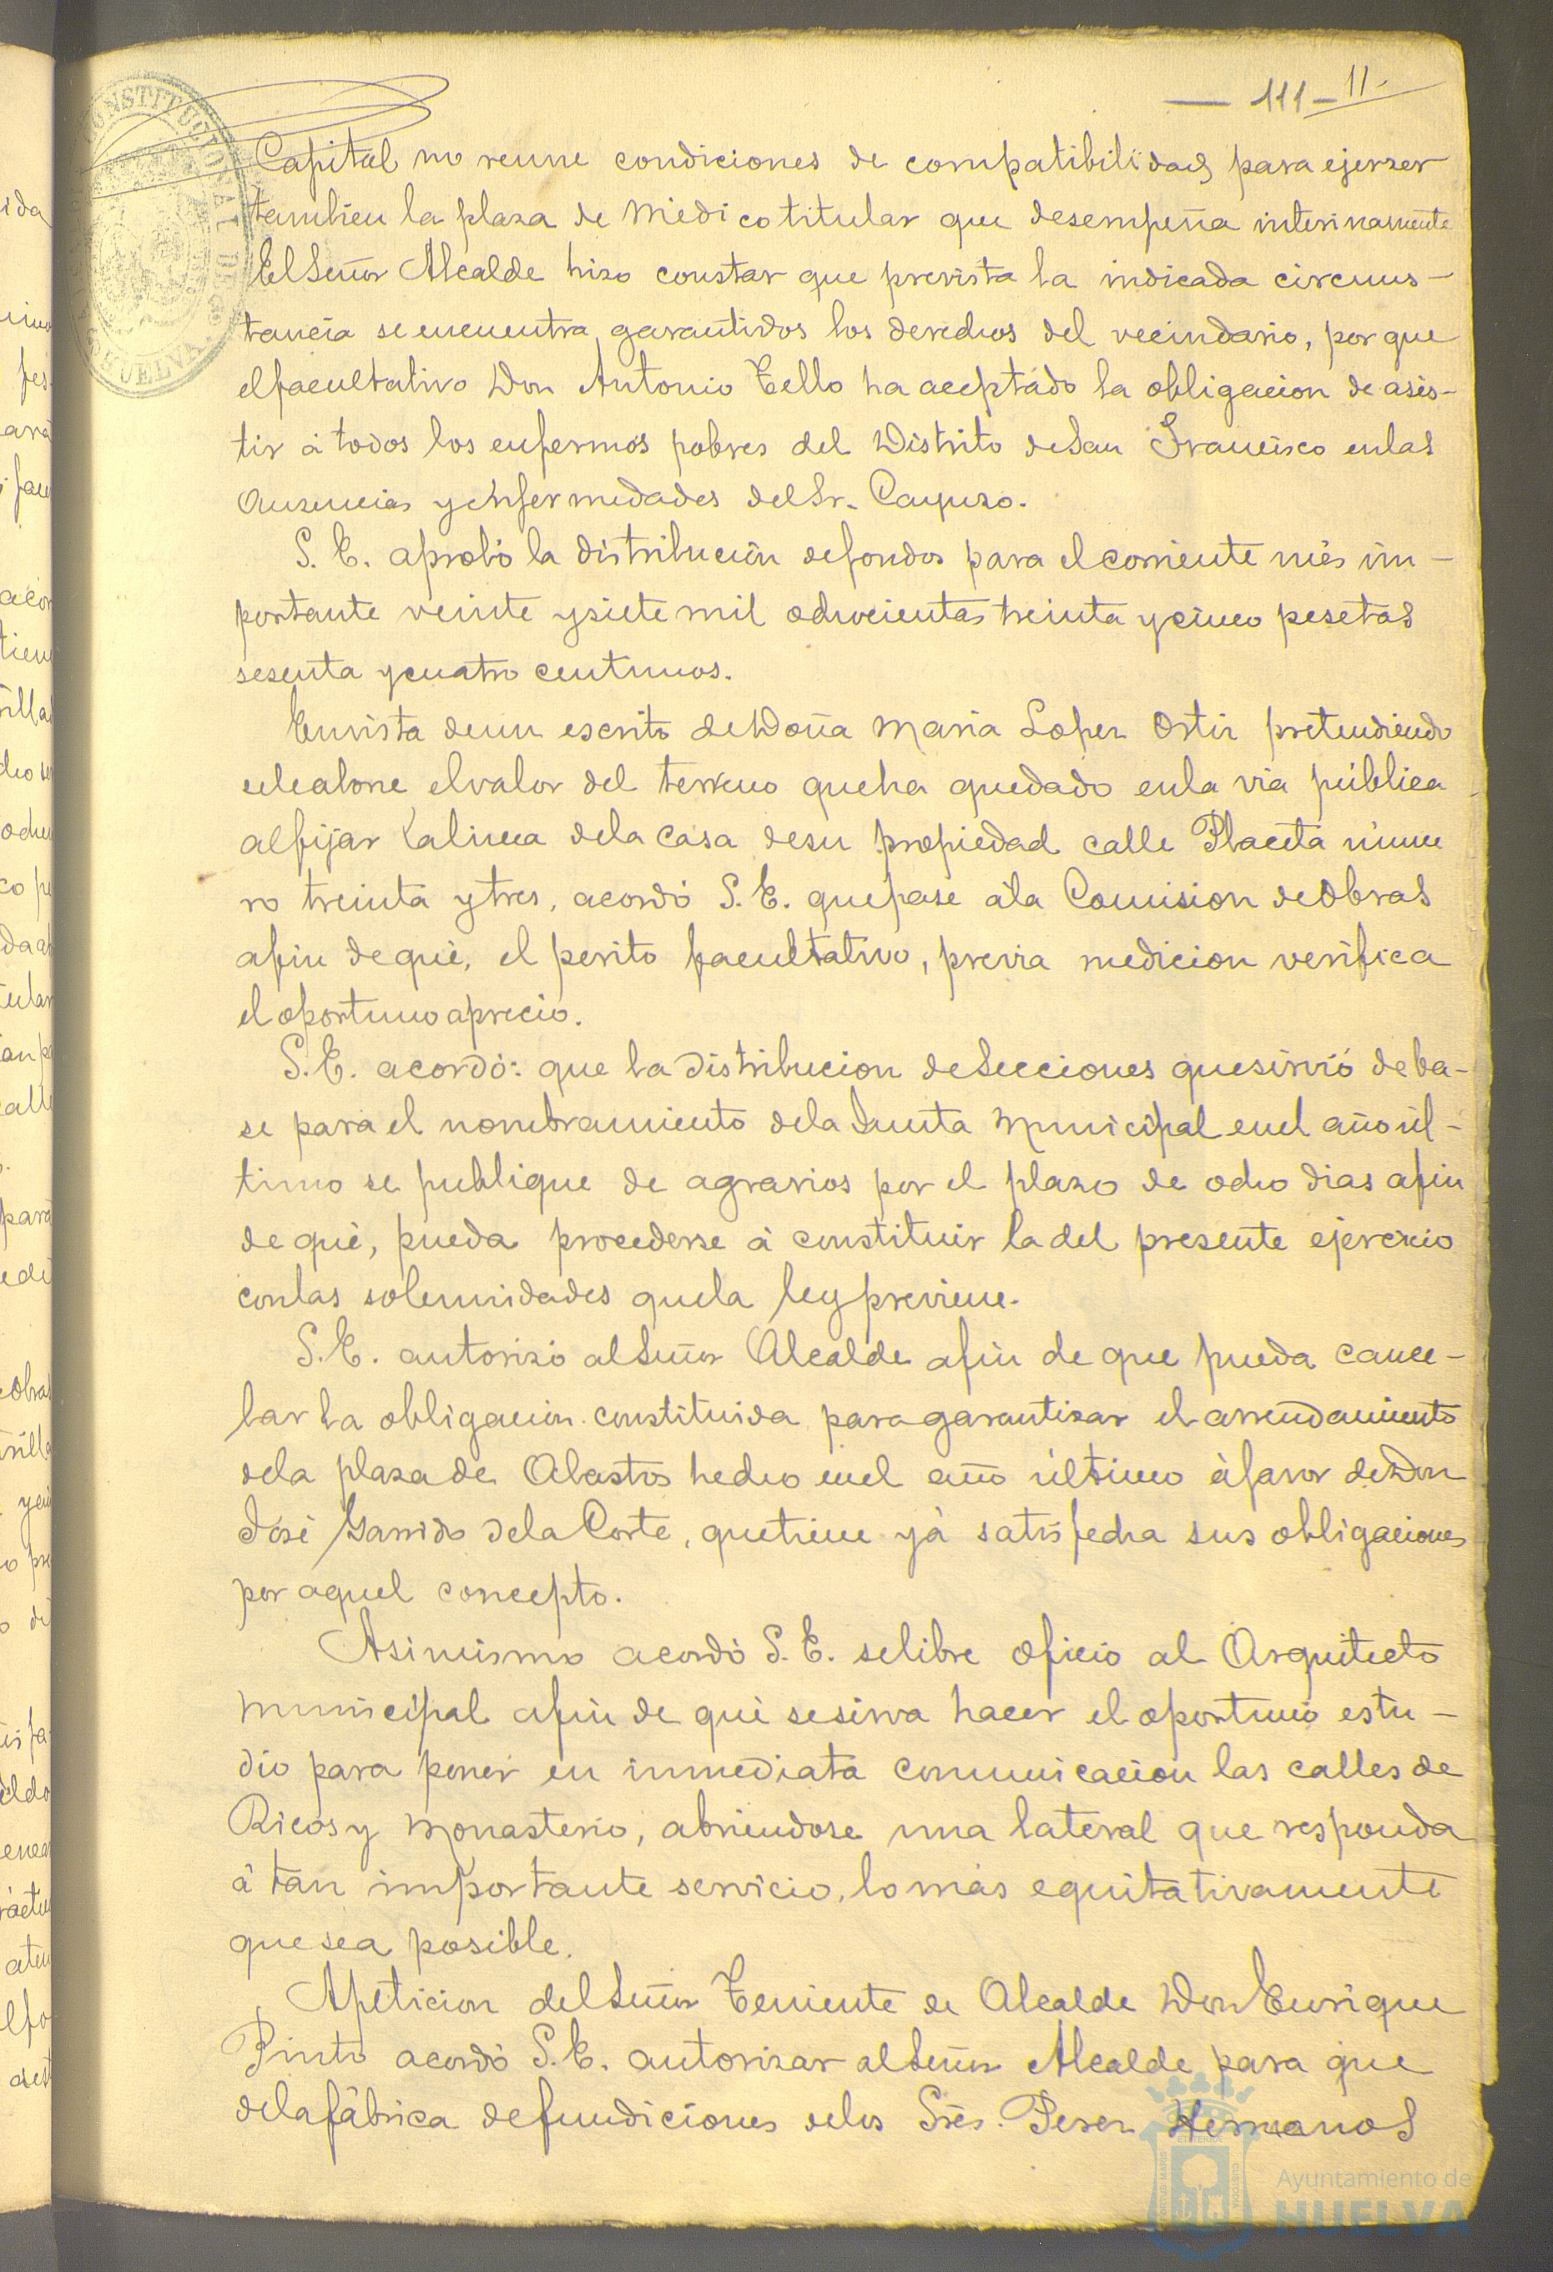 111 - 11.
Capital no reune condiciones de compatibilidad para ejerzer
tambien la plaza de Médico titular que desempeña interinamente
El Señor Alcalde hizo constar que prevista la indicada circuns-
tancia se encuentra garantidos los derechos del vecindario, por que
el facultativo Don Antonio Tello ha aceptado la obligacion de asis-
tir á todos los enfermos pobres del Distrito de San Francisco en las
ausencias y enfermedades del Sr. Cayuzo.
S. E. aprobó la distribución de fondos para el corriente més im-
portante veinte y siete mil ochocientas treinta y cinco pesetas
sesenta y cuatro centimos.
En vista de un escrito de Doña Maria Lopez Ortiz pretendiendo
se le abone el valor del terreno que ha quedado en la via pública
al fijar la linea de la casa de su propiedad calle Placeta núme
ro treinta y tres, acordó S. E. que pase á la Comision de Obras
afin de qué, el perito facultativo, previa medicion verifica
el oportuno aprecio.
S. E. acordó: que la distribucion de Secciones que sirvió de ba-
se para el nombramiento de la Junta Municipal en el año úl-
timo se publique de agravios por el plazo de ocho dias afin
de qué, pueda procederse á constituir la del presente ejercicio
con las solemnidades que la ley previene.
S. E. autorizó al Señor Alcalde afin de que pueda cance-
lar la obligación constituida para garantizar el arrendamiento
de la plaza de Abastos hecho en el año último á favor de Don
José Garrido de la Corte, que tiene yá satisfecha sus obligaciones
por aquel concepto.
Asimismo acordó S. E. se libre oficio al Arquitecto
Municipal afin de qué se sirva hacer el oportuno estu-
dio para poner en inmediata comunicacion las calles de
Ricos y Monasterio, abriendose una lateral que responda
á tan importante servicio, lo más equitativamente
que sea posible.
A peticion del Señor Teniente de Alcalde Don Enrique
Pinto acordó S. E. autorizar al Señor Alcalde para que
de la fábrica de fundiciones de los Srés. Perez Hermanos
Ayuntamiento de
HUELVA